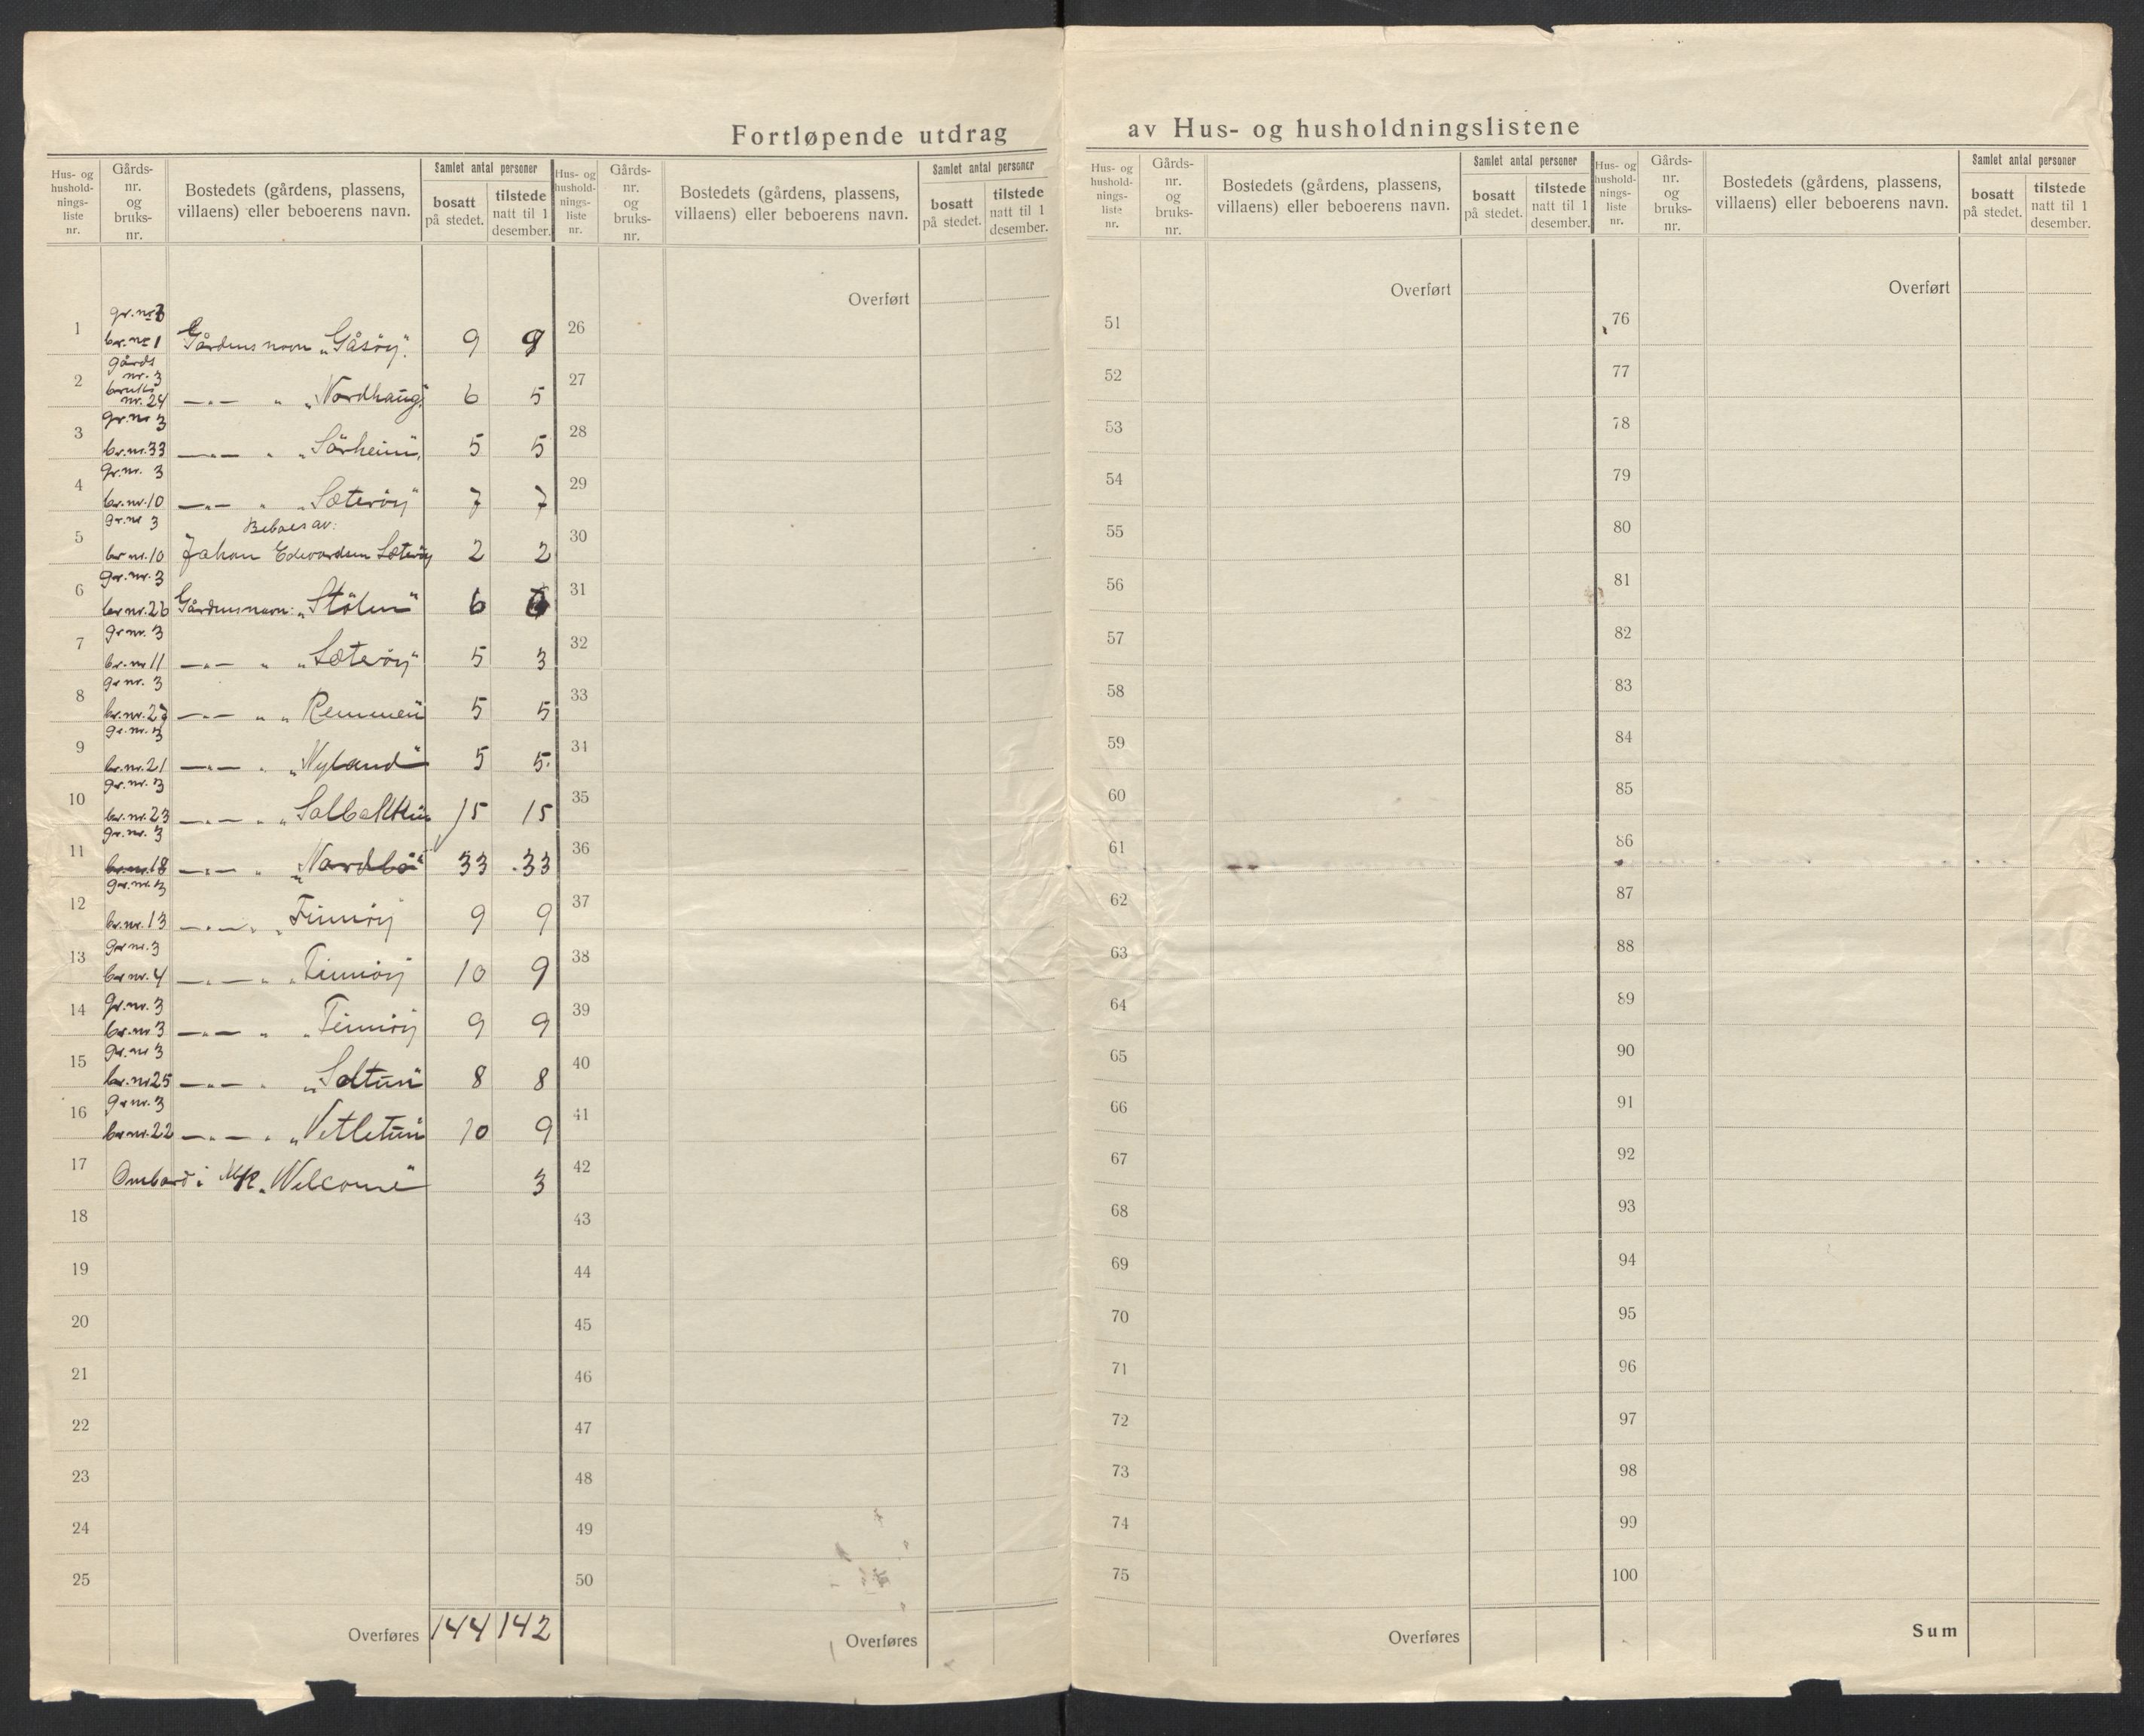 Fortløpende utdrag av Hus- og husholdningslistene
Hus- og hushold- nings- liste nr. Gårds- nr. og bruks- nr. Bostedets (gårdens, plassens, villaens) eller beboerens navn. Samlet antal personer bosatt på stedet. tilstede natt til 1 desember.
1 gr. nr 3 br. nr 1 Gårdens navn „Gåsöy". 9 9
2 gårds nr. 3 bruks nr. 24 —„— „ „Nordhaug" 6 5
3 gr. nr 3 br. nr. 33 —„— „ „Sörheim" 5 5
4 gr. nr. 3 br. nr. 10 —„— „ „Sæteröy" 7 7
5 gr. nr 3 br nr. 10 Beboes av: Johan Edvardsen Sæteröy 2 2
6 gr. nr. 3 br nr. 26 Gårdens navn: „Stölen" 6
7 gr nr. 3 br. nr 11 —„— „ „Sæteröy" 5 3
8 gr nr. 3 br. nr. 27 —„— „ „Remmen" 5 5
9 gr. nr. 3 br. nr. 21 —„— „ „Nyland" 5 5.
10 gr. nr. 3 br. nr. 23 —„— „ „Solbakken 15 15
11 gr. nr. 3 br. nr. 18 —„— „ „Nordbö" 33 33
12 gr. nr. 3 br. nr. 13 —„— „ „Finnöy 9 9
13 gr nr. 3 br nr. 4 —„— „ „Finnöy 10 9
14 gr. nr. 3 br. nr 3 —„— „ „Finnöy 9 9
15 gr. nr 3 br. nr 25 —„— „ „Soltun" 8 8
16 gr nr. 3 br nr. 22 —„— „ „Vetletun" 10 9
17 Ombord i M/K „Welcome" 3
18
19
20
21
22
23
24
25
Overføres 144 142
Hus- og hushold- nings- liste nr. Gårds- nr. og bruks- nr. Bostedets (gårdens, plassens, villaens) eller beboerens navn. Samlet antal personer bosatt på stedet. tilstede natt til 1 desember.
Overført
26
27
28
29
30
31
32
33
34
35
36
37
38
39
40
41
42
43
44
45
46
47
48
49
50
Overføres
Hus- og hushold- nings- liste nr. Gårds- nr. og bruks- nr. Bostedets (gårdens, plassens, villaens) eller beboerens navn. Samlet antal personer bosatt på stedet. tilstede natt til 1 desember.
Overført
51
52
53
54
55
56
57
58
59
60
61
62
63
64
65
66
67
68
69
70
71
72
73
74
75
Overføres
Hus- og hushold- nings- liste nr. Gårds- nr. og bruks- nr. Bostedets (gårdens, plassens, villaens) eller beboerens navn. Samlet antal personer bosatt på stedet. tilstede natt til 1 desember.
Overført
76
77
78
79
80
81
82
83
84
85
86
87
88
89
90
91
92
93
94
95
96
97
98
99
100
Sum